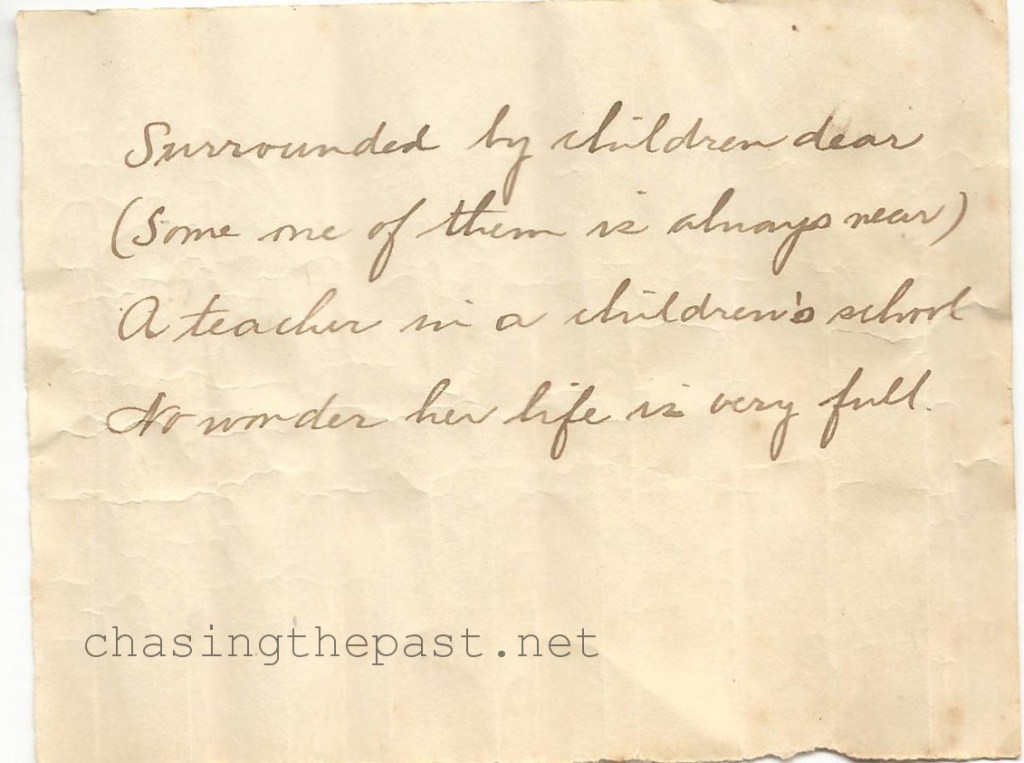 Surrounded by children dear
(Some one of them is always near)
A teacher in a children's school
No wonder her life is very full.
chasingthepast.net